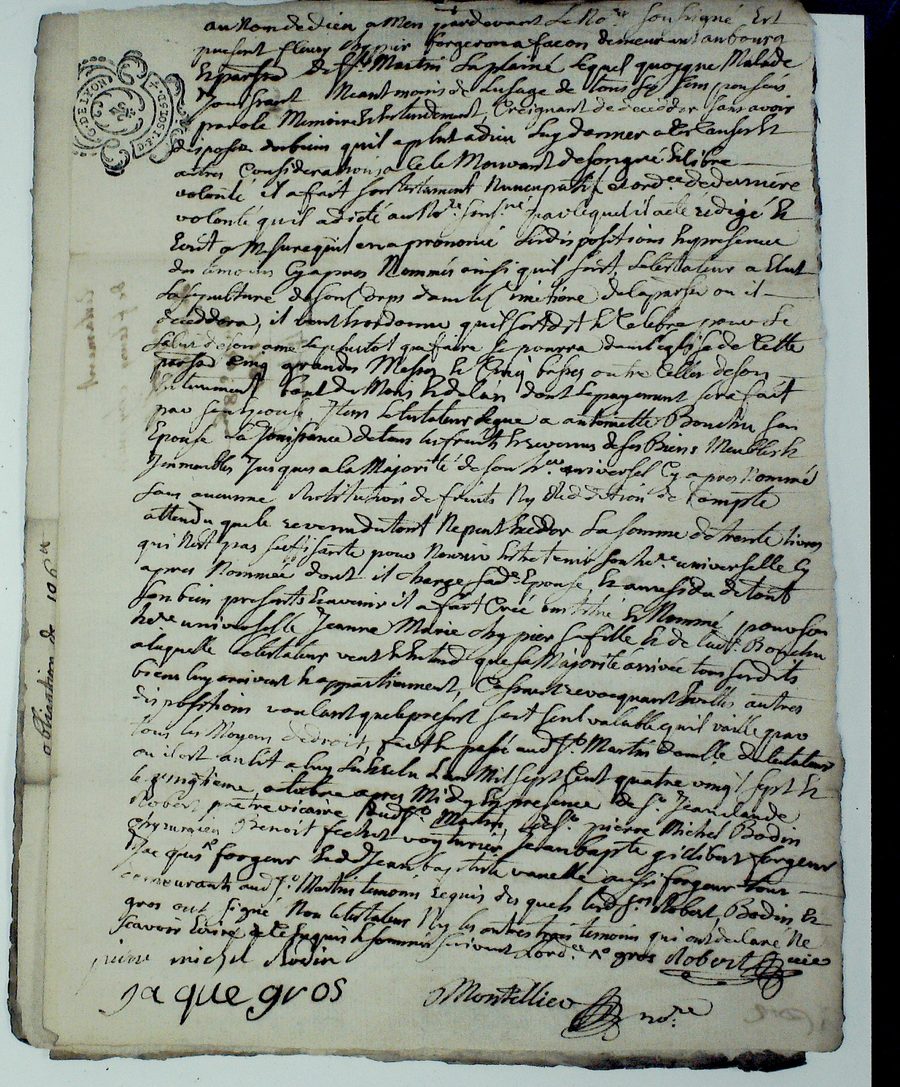 au Nom de dieu amen pardevant Le No.re Soussigné Est
present fleury chypier forgeron a facon demeurant au bourg
Et parsse De St. Martin La plaine Lequel quoyque Malade
Jouissant Neantmoins de Lusage de tous Ses Sens pensées
parole Memoire et Entendement, Creignant de deceder Sans avoir
disposé des biens quil a plut a dieu Luy donner a Ces Causes Et
autres Considerations a Ce le Mouvant de Songré Et libre
volonté il a fait Son testament Nuncupatif Et ord.ce de derniere
volonté quil a dicté au No.re Souss.né par lequel il a Eté redigé Et
Ecrit a Mesure quil En a prononcé Les dispositions En presence
des temoins Cy apres Nommés ainsi quil Suit, Le testateur a Elut
La Sepulture de Son Corps dans le Cimetiere de la parsse ou il
decedera, il veut Et ordonne quil Soit dit Et Celebré pour Le
Salut de Son ame Le plutot que faire Se pourra dans l'eglise de Cette
parsse Cinq grandes Messes Et Cinq basses outre Celles de Son
Enterrement dont Le payement Sera fait
par Son Epouse Item Le testateur Legue a antoinette Bonchu Son
Epouse La Jouissance de tous les fruits Et revenus de Ses Biens Meubles Et
Immeubles Jusques a la Majorité de Son he.re universel Cy apres Nommé
Sans aucunne restitution de fruits Ny Reddition de Compte
attendu que le revenu du tout Ne peut Exceder La Somme de trente livres
qui N'est pas Suffisante pour Nourir Et Entretenir Son he.re universelle Cy
apres Nommée dont il charge Sad.e Epouse, Et au residu de tout
Son bien presents Et avenir il a fait Créé institué Et Nommé pour Son
he.re universelle Jeanne Marie chypier Sa fille Et de lad.e Bonchu
a laquelle Le testateur veut Et Entend que Sa Majorité arrivée tous Sesdits
biens luy arrivent Et appartiennent, Cassant revocquant toutes autres
dispositions voulant que le present Soit Seul valable quil vaille par
tous les Moyens de droit, fait Et passé aud. St. Martin domicille du testateur
ou il est au lit a luy Lu Et relu L'an Mil Sept Cent quatre vingt Sept Et
le vingtieme octobre apres Midy En presence de S.r Jean Claude
Robert prêtre vicaire aud. St. Martin, de S.r pierre Michel Bodin
chyrurgien Benoit fechet voyturier, Jean bapte gilibert forgeur
Jacques gros forgeur Et de Jean baptiste vanelle aussi forgeur tous
demeurants aud. St. Martin temoins requis des quels Led. S.rs Robert Bodin Et
gros ont Signé Non Le testateur Ny les autres trois temoins qui ont declaré Ne
Scavoir Ecrire de Ce Enquis Et Sommés Suivant L'ord.ce gros Robert vicaire
pierre michel Bodin
Jaque gros
Montellier no.re
G. DE LYON
obligation de 196 #